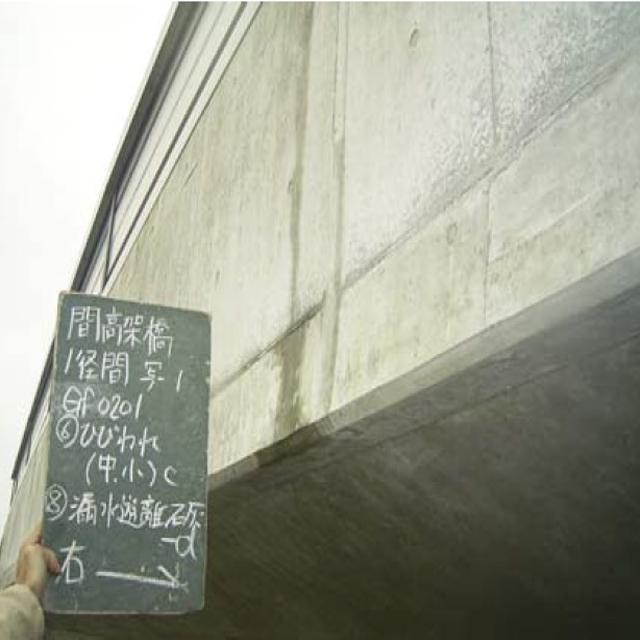 間高架橋
1径間 写1
Gf0201
⑥ひびわれ
(中.小)c
⑧漏水遊離石灰
-d
右→